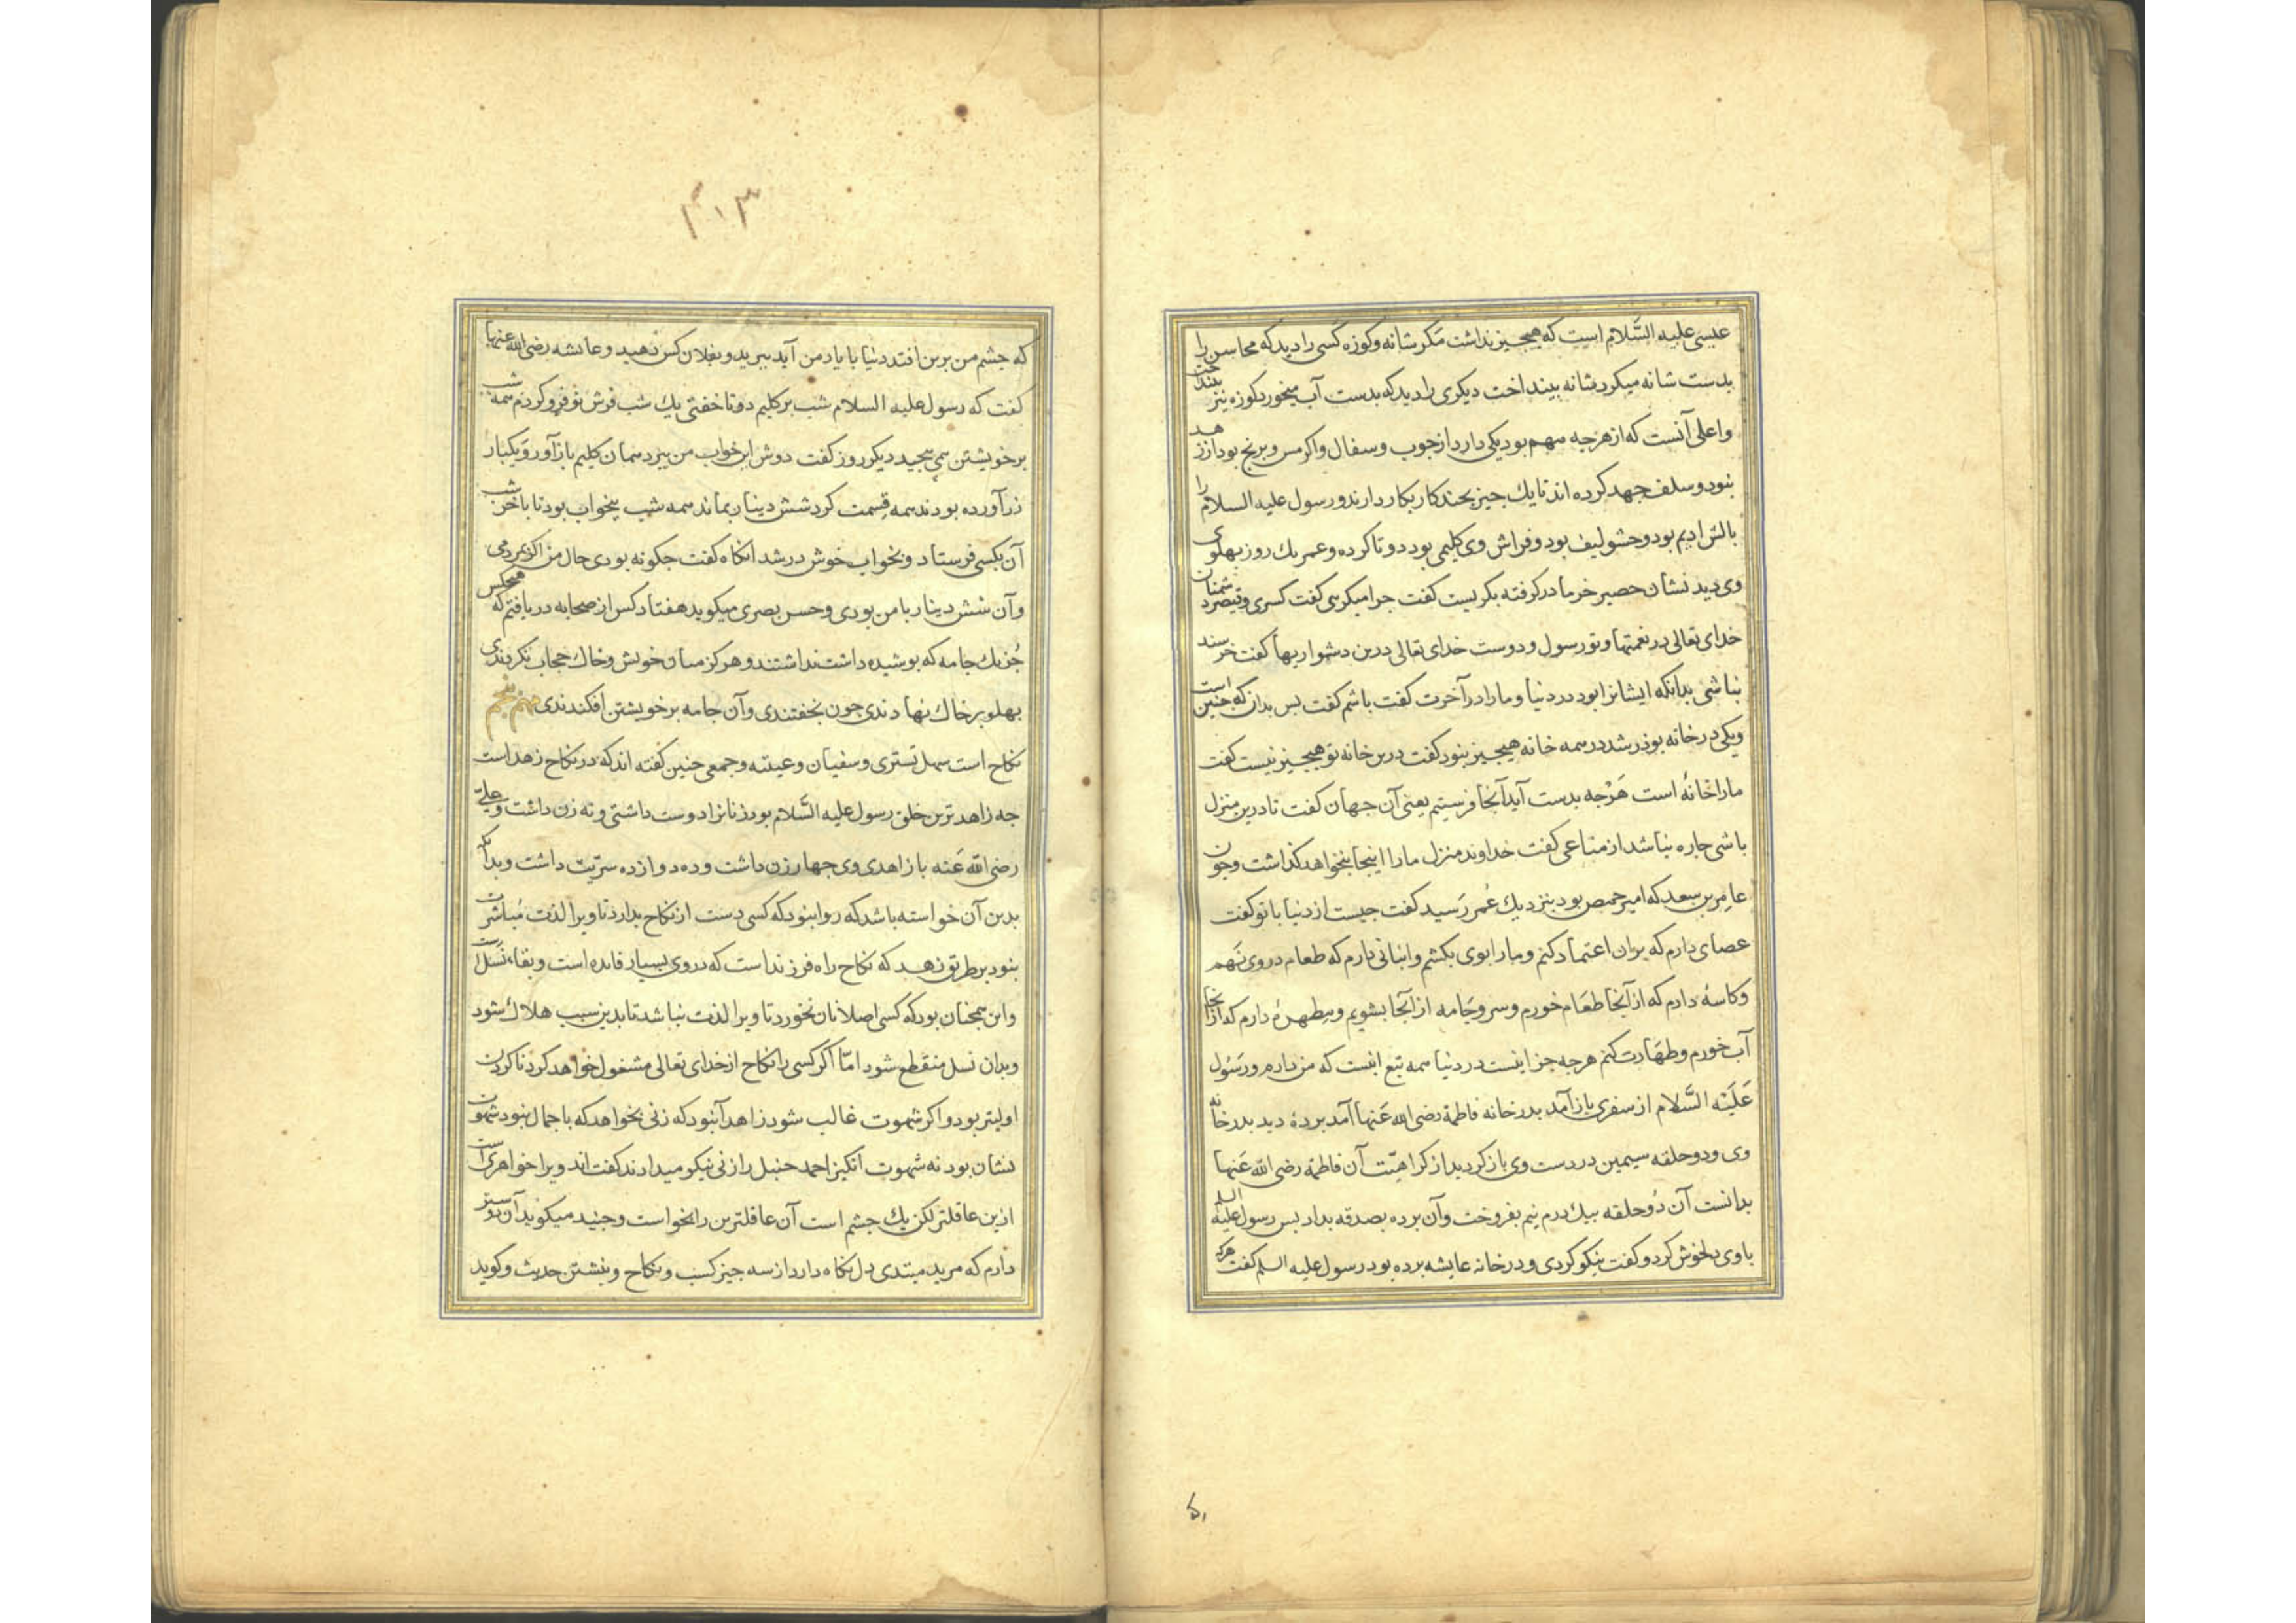 عیسی علیه السَّلام است که هیچ‌چیز نداشت مکر شانه وکوزه کسی را دید که محاسن را
بدست شانه میکرد شانه بینداخت دیکری را دید که بدست آب میخورد کوزه نیز بینداخت
واعلی آنست که از هرجه مهم بود یکی دارد از جوب وسفال واکر مس وبرنج بود از زهد
نبود وسلف جهد کرده اند تا یك جیز بجند کار بکار دارند ورسول علیه السلام را
بالش ادیم بود وحشو لیف بود وفراش وی کلیمی بود دو تا کرده وعمر یك روز بهلوی
وی دید نشان حصیر خرما در کرفته بکریست کفت جرا میکریی کفت کسری وقیصر دشمنان
خدای تعالی در نعمتها وتو رسول ودوست خدای تعالی درین دشواریها کفت خرسند
نباشی بدانکه ایشانرا بود در دنیا ومارا در آخرت کفت باشم کفت بس بدان که جنین است
ویکی در خانه بوذر شد در همه خانه هیچ‌چیز نبود کفت درین خانه تو هیچ‌چیز نیست کفت
مارا خانهٔ است هَرْجه بدست آید آنجا فرستیم یعنی آن جهان کفت تا درین منزل
باشی جاره نباشد از متاعی کفت خداوند منزل مارا اینجا بنخواهد کذاشت وجون
عامر بن سعد که امیر حمص بود بنزدیك عُمر رَسید کفت جیست از دنیا با تو کفت
عصای دارم که بران اعتماد کنم ومار ابوی بکشم وانبانی دارم که طعام در وی نَهم
وکاسهٔ دارم که از آنجا طعَام خورم وسر وجَامه از آنجا بشویم ومِطهرهٔ دارم که از آنجا
آب خورم وطهَارت کنم هرجه جز اینست در دنیا همه تبع اینست که من دارم ورَسُول
عَلَیْه السَّلام از سفری باز آمد بدر خانه فاطمة رضی الله عَنها آمد بردهٔ دید بدر خانه
وی ودو حلقه سیمین در دست وی باز کردید از کراهیّت آن فاطمة رضی الله عَنها
بدانست آن دُو حلقه بیك درم نیم بفروخت وآن برده بصدقه بداد بس رسول علیه السلم
با وی دلخوش کرد وکفت نیکو کردی ودر خانه عایشه برده بود رسول علیه السلم کفت هرکه
۱۵
۳۱۳
که جشم من برین افتد دنیا با یاد من آید ببرید وبفلان کس دهید وعائشه رضی الله عنها
کفت که رسول علیه السلام شب بر کلیم دو تا خفتی یك شب فرش نو فرو کردم همه شب
بر خویشتن می‌بیجید دیکر روز کفت دوش این خواب من ببرد همان کلیم باز آور ویکبار
زر آورده بودند همه قسمت کرد شش دینار بماند همه شب بیخواب بود تا باخر شب
آن بکسی فرستاد وبخواب خوش در شد انکاه کفت جکونه بودی حال من اکر بمردمی
وآن شش دینار با من بودی وحسن بصری میکوید هفتاد کس از صحابه دریافتم که هیچکس
جُز یك جامه که بوشیده داشت نداشتند وهرکز میان خویش وخاك حجاب نکردندی
بهلو بر خاك نهادندی جون بخفتندی وآن جامه بر خویشتن افکندندی مهم پنجم
نکاح است سهل تستری وسفیان وعیینه وجمعی جنین کفته اند که در نکاح زهد است
جه زاهد ترین خلق رسول علیه السَّلام بود زنانرا دوست داشتی ونه زن داشت وعلی
رضی الله عَنه با زاهدی وی جهار زن داشت وده دوازده سریّت داشت وبدانکه
بدین آن خواسته باشد که روا نبود که کسی دست از نکاح بدارد تا ویرا لذت مُباشرت
نبود بر طریق زهد که نکاح راه فرزند است که در وی بسیار فایده است وبقاء نَسل است
واین همجنان بود که کسی اصلا نان نخورد تا ویرا لذت نباشد تا بدین سبب هلاك شود
وبدان نسل منقطع شود امّا اکر کسی را نکاح از خدای تعالی مشغول خواهد کرد ناکردن
اولیتر بود واکر شهوت غالب شود زاهد آنبود که زنی بخواهد که با جمال نبود شهوت
نشان بود نه شهوت انکیز احمد حنبل را زنی نیکو میدادند کفت اند ویرا خواهری است
ازین عاقلتر لکن یك جشم است آن عاقلترین را بخواست وجنید میکوید آن دوستر
دارم که مرید مبتدی دل نکاه دارد از سه جیز کسب ونکاح ونبشتن حدیث وکوید